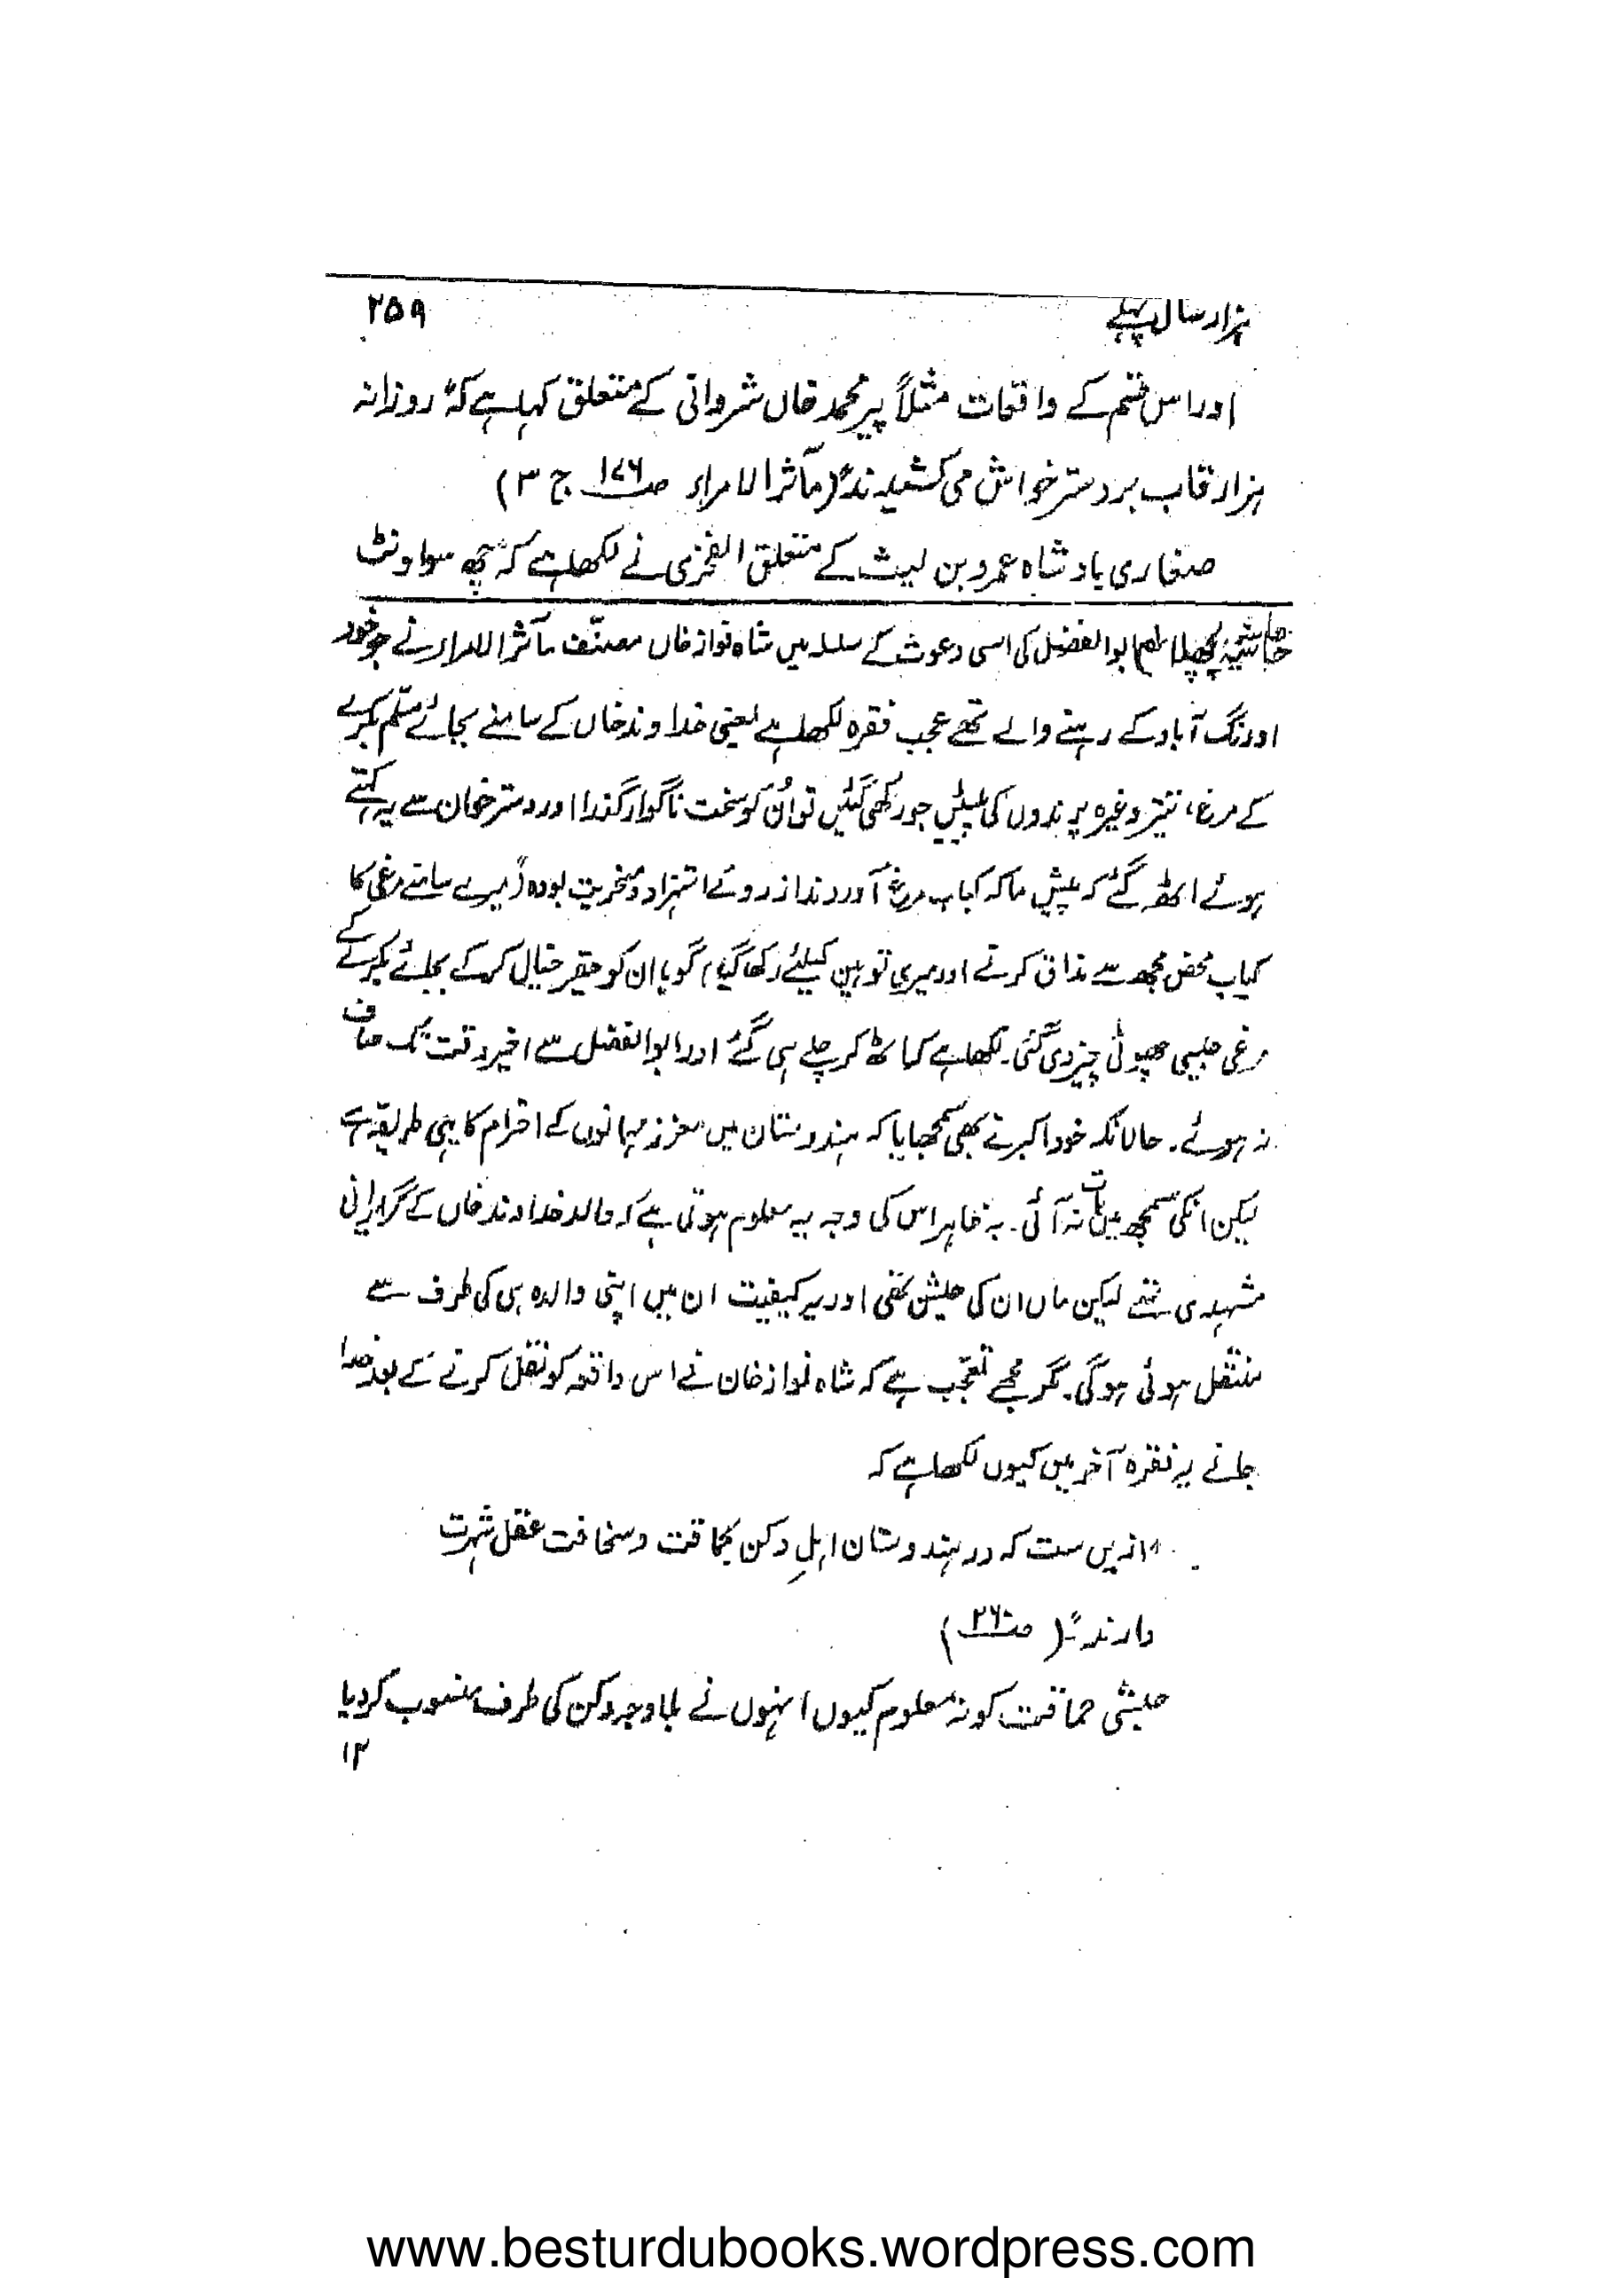 ہزار سال پہلے ۲۵۹
اور اس قسم کے واقعات مثلاً پیر محمد خاں شروانی کے متعلق کہا ہے کہ "روزانہ
ہزار قاب بر دسترخواش می کشیدند" (مآثر الامراء ص۱۷۶ ج ۳)
صفاری بادشاہ عمرو بن لیث کے متعلق الفخری نے لکھا ہے کہ "چھ سو اونٹ
حاشیہ پچھلا ابوالفضل کی اسی دعوت کے سلسلہ میں شاہ نواز خاں مصنّف مآثر الامراء نے جو خود
اورنگ آباد کے رہنے والے تھے عجب فقرہ لکھا ہے یعنی خداوند خاں کے سامنے بجائے مسلّم بکرے
کے مرغ، تیتر وغیرہ پرندوں کی پلیٹیں جو رکھی گئیں تو اُن کو سخت ناگوار گذرا اور دسترخوان سے یہ کہتے
ہوئے اٹھ گئے کہ پیش ما کہ کباب مرغ آوردند از روئے استہزاد و سخریت بودہ (میرے سامنے مرغی کا
کباب محض مجھ سے مذاق کرتے اور میری توہین کیلئے رکھا گیا) گویا ان کو حقیر خیال کر کے بجائے بکرے کے
مرغی جیسی چھوٹی چیز دی گئی۔ لکھا ہے کہ اٹھ کر چلے ہی گئے اور ابوالفضل سے اخیر وقت تک صاف
نہ ہوئے۔ حالانکہ خود اکبر نے بھی سمجھایا کہ ہندوستان میں معزز مہمانوں کے احترام کا یہی طریقہ ہے
لیکن انکی سمجھ میں بات نہ آئی۔ بہ ظاہر اس کی وجہ یہ معلوم ہوتی ہے کہ والد خداوند خاں کے گو ایرانی
مشہدی تھے لیکن ماں ان کی حبشن تھی اور یہ کیفیت ان میں اپنی والدہ ہی کی طرف سے
منتقل ہوئی ہوگی۔ مگر مجھے تعجّب ہے کہ شاہ نواز خان نے اس واقعہ کو نقل کرنے کے بعد خدا
جانے یہ فقرہ آخر میں کیوں لکھا ہے کہ
"ازیں ست کہ در ہندوستان اہلِ دکن بحماقت و سخافت عقل شہرت
دارند"۔ (ص۲۶)
حبشی حماقت کو نہ معلوم کیوں انہوں نے بلاوجہ دکن کی طرف منسوب کر دیا
۱۲
www.besturdubooks.wordpress.com